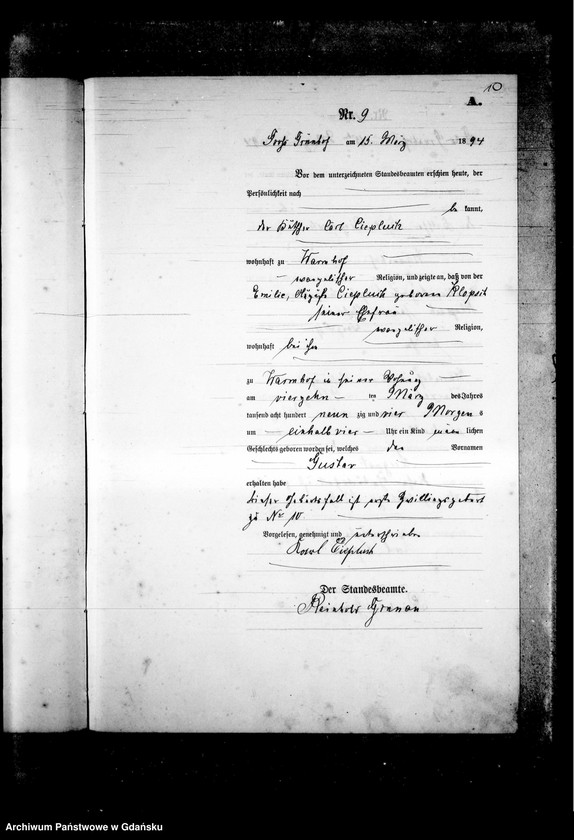 10
A.
Nr. 9
Grünhof am 15. März 1894
Vor dem unterzeichneten Standesbeamten erschien heute, der
Persönlichkeit nach
be kannt,
der Carl Ciepluch
wohnhaft zu Warmhof
evangelischer Religion, und zeigte an, daß von der
Emilie, Ciepluch geborenen Klopsch
seiner Ehefrau
evangelischer Religion,
wohnhaft bei ihm
zu Warmhof in seiner Wohnung
am vierzehn ten März des Jahres
tausend acht hundert neun zig und vier Morgen s
um einhalb vier Uhr ein Kind männ lichen
Geschlechts geboren worden sei, welches den Vornamen
Gustav
erhalten habe
dieser Geburtsfall ist erste Zwillingsgeburt
zu No 10
Vorgelesen, genehmigt und unterschrieben
Ciepluch
Der Standesbeamte.
Reinhold
Archiwum Państwowe w Gdańsku